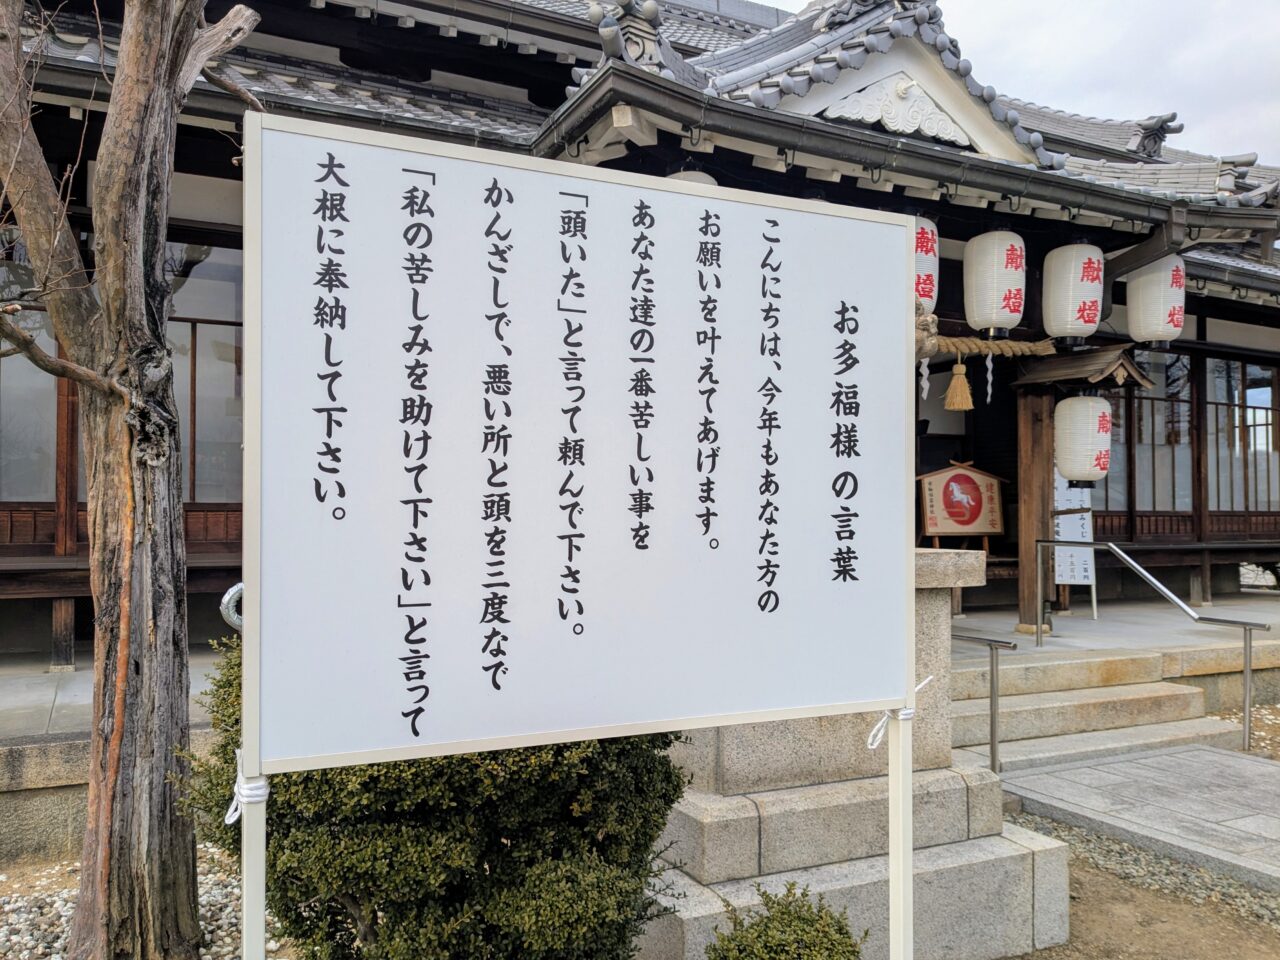 お多福様の言葉
こんにちは、今年もあなた方の
お願いを叶えてあげます。
あなた達の一番苦しい事を
「頭いた」と言って頼んで下さい。
かんざしで、悪い所と頭を三度なで
「私の苦しみを助けて下さい」と言って
大根に奉納して下さい。
献燈
献燈
献燈
献燈
献燈
健康平安
二百円
千五百円